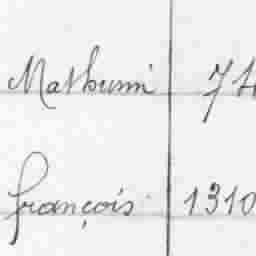 Mathurin 74
françois 1310